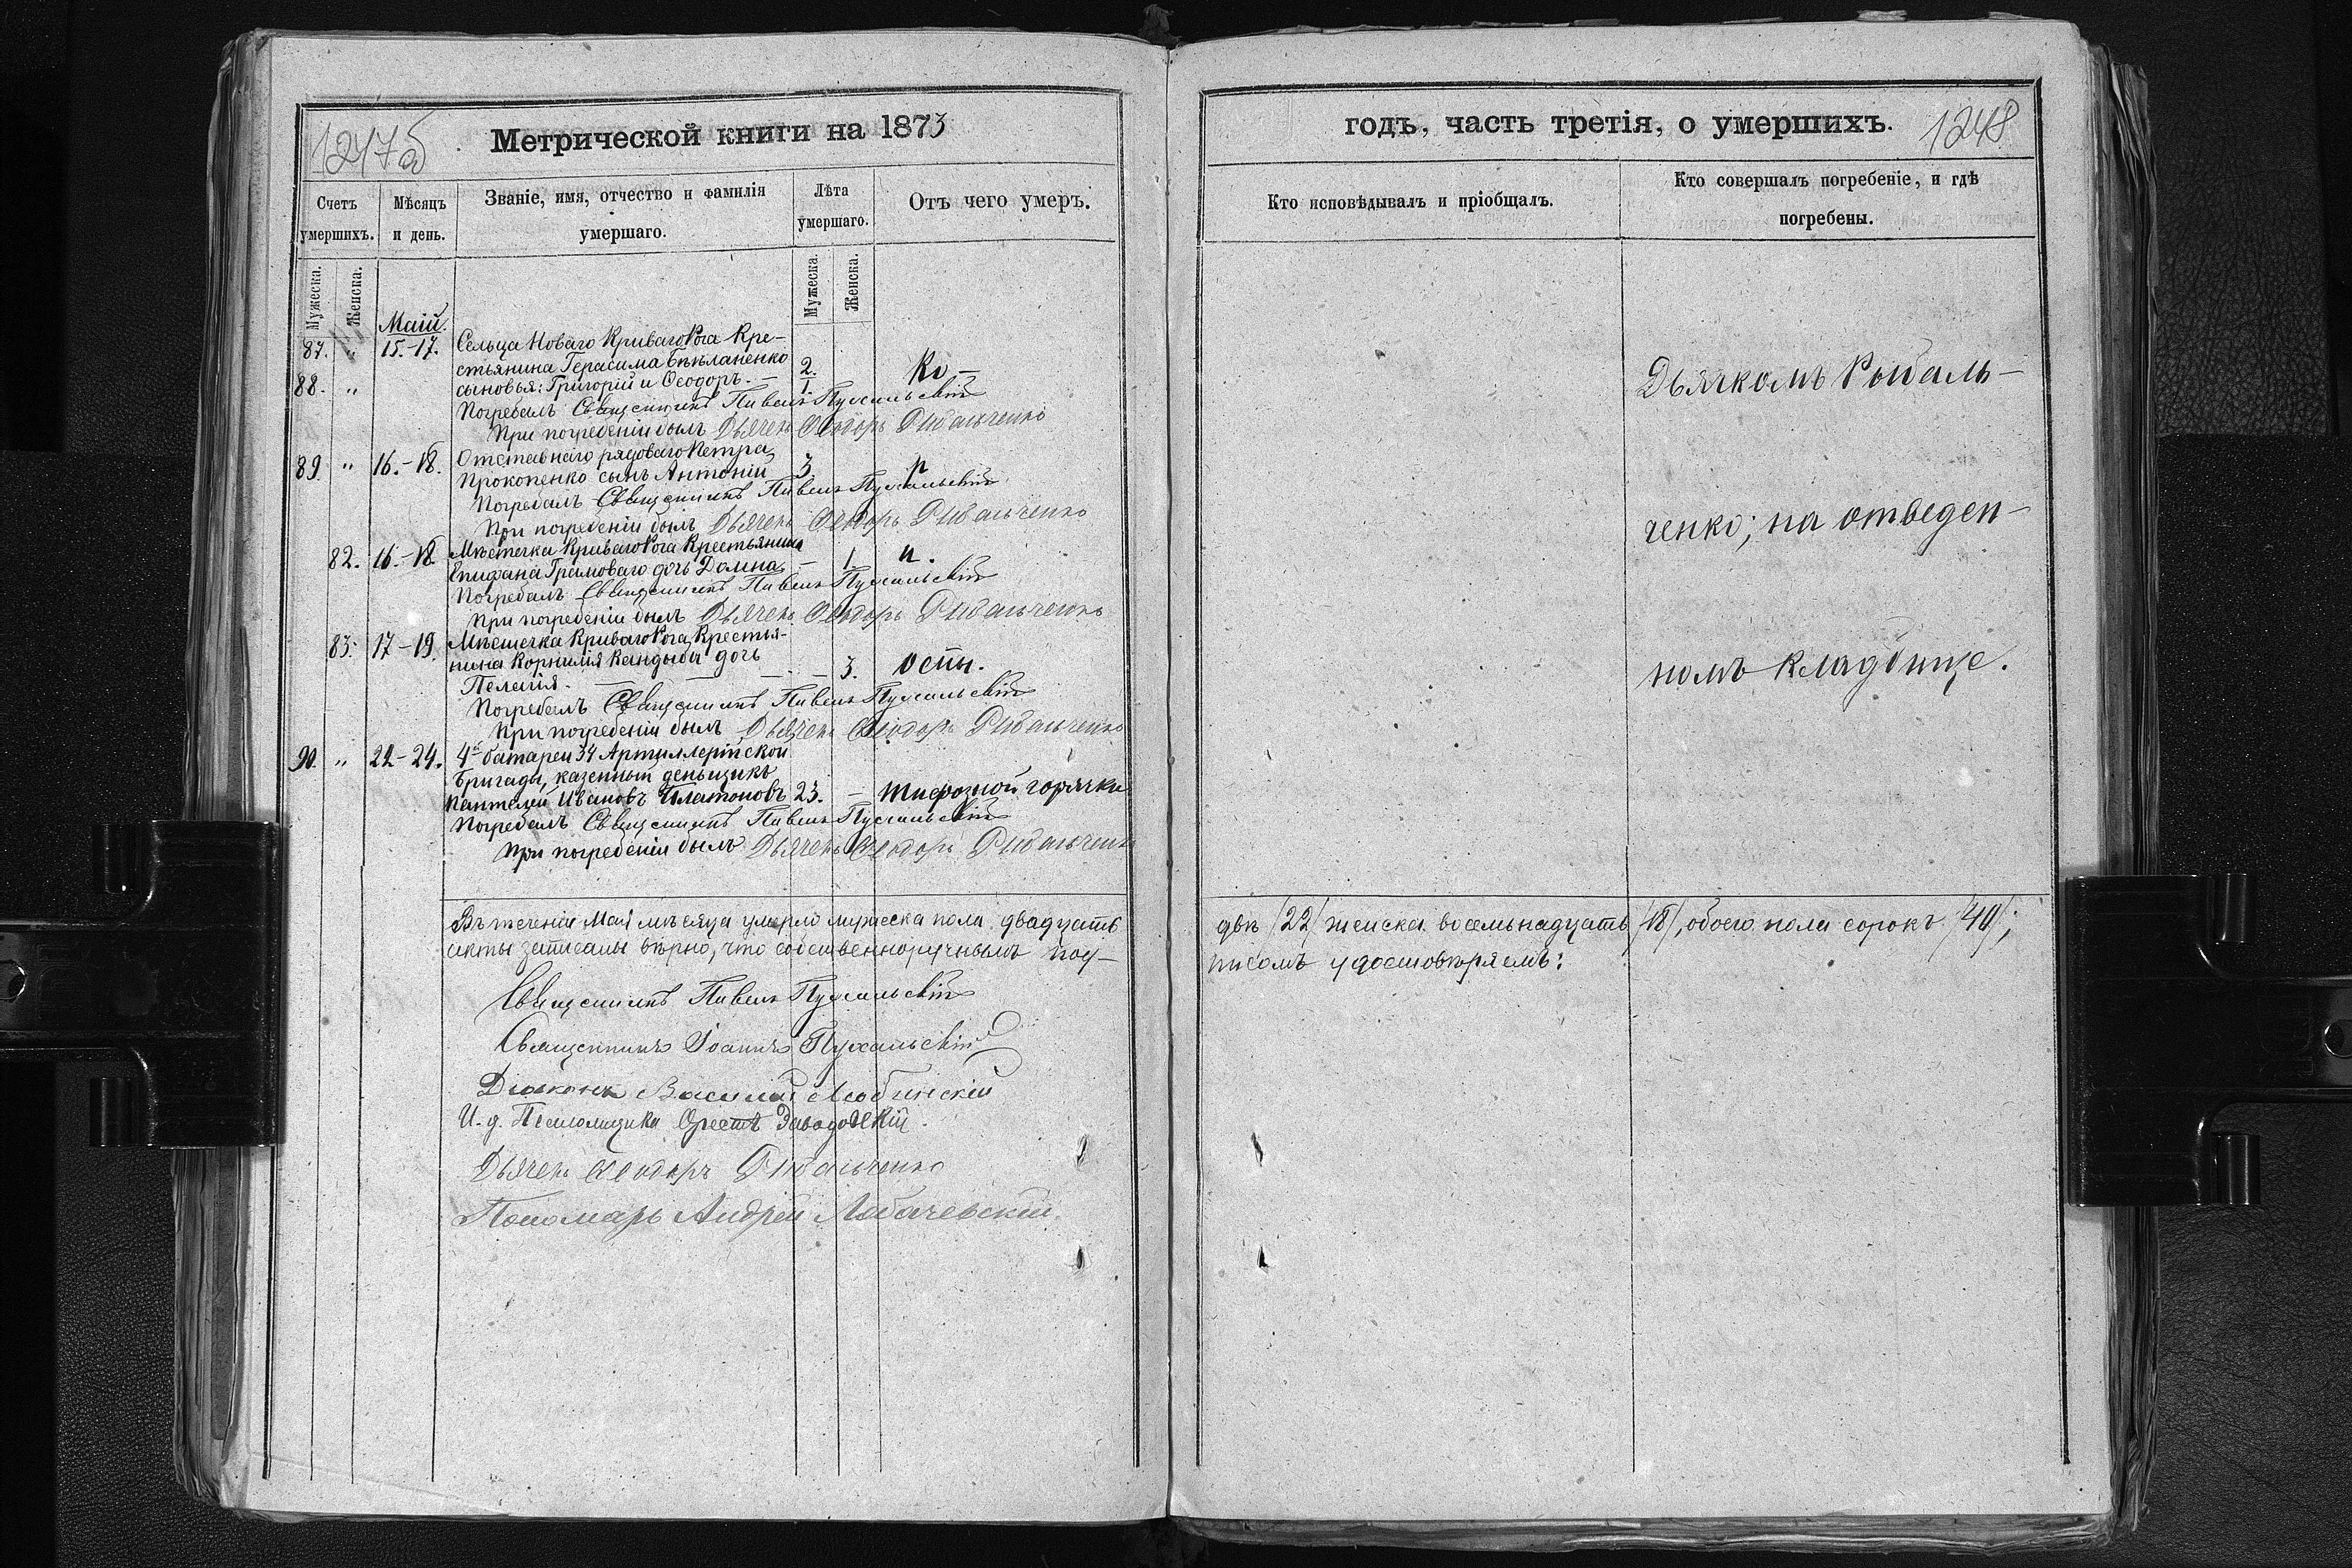 1247об
Метрической книги на 1873
Счетъ умершихъ.
Мѣсяцъ и день.
Званіе, имя, отчество и фамилія умершаго.
Лѣта умершаго.
Отъ чего умеръ.
Мужеска.
Женска.
Мужеска.
Женска.
Маій.
87. „ 15.-17. Сельца Новаго КривагоРога Кре-
стьянина Герасима Бѣланенко 2. Ко-
88. „ сыновья: Григорій и Ѳеодоръ. — 1.
Погребалъ Священникъ Павелъ Пухальскій
При погребеніи былъ Дьячекъ Ѳеодоръ Рыбальченко
89. „ 16.-18. Отставнаго рядоваго Петра
Прокопенко сынъ Антоній 3. р
Погребалъ Священникъ Павелъ Пухальскій
При погребеніи былъ Дьячекъ Ѳеодоръ Рыбальченко
82. 16.-18. Мѣстечка КривагоРога Крестьянина
Епифана Громоваго дочь Домна — 1. и.
Погребалъ Священникъ Павелъ Пухальскій
При погребеніи былъ Дьячекъ Ѳеодоръ Рыбальченко
83. 17-19. Мѣстечка КривагоРога Крестья-
нина Корнилія Кандыбы дочь
Пелагія. — — — — 3. оспы.
Погребалъ Священникъ Павелъ Пухальскій
При погребеніи былъ Дьячекъ Ѳеодоръ Рыбальченко
90. „ 22-24. 4й батареи 34 Артиллерійской
Бригады, казенный деньщикъ
Пантелей Ивановъ Платоновъ 23. — тифозной горячки
Погребалъ Священникъ Павелъ Пухальскій
При погребеніи былъ Дьячекъ Ѳеодоръ Рыбальченко
Въ теченіи Маія мѣсяца умерло мужеска пола двадцать
акты записаны вѣрно, что собственноручнымъ под-
Священникъ Павелъ Пухальскій
Священникъ Іоаннъ Пухальскій
Діаконъ Василій
И. д. Псаломщика Орестъ Заводовскій.
Дьячекъ Ѳеодоръ Рыбальченко
Пономарь Андрей Лобачевскій
годъ, часть третія, о умершихъ.
1248
Кто исповѣдывалъ и пріобщалъ.
Кто совершалъ погребеніе, и гдѣ
погребены.
Дьячкомъ Рыбаль-
ченко; на отведен-
номъ кладбище.
двѣ /22/ женска восемьнадцать /18/, обоего пола сорокъ /40/;
писомъ удостовѣряемъ: